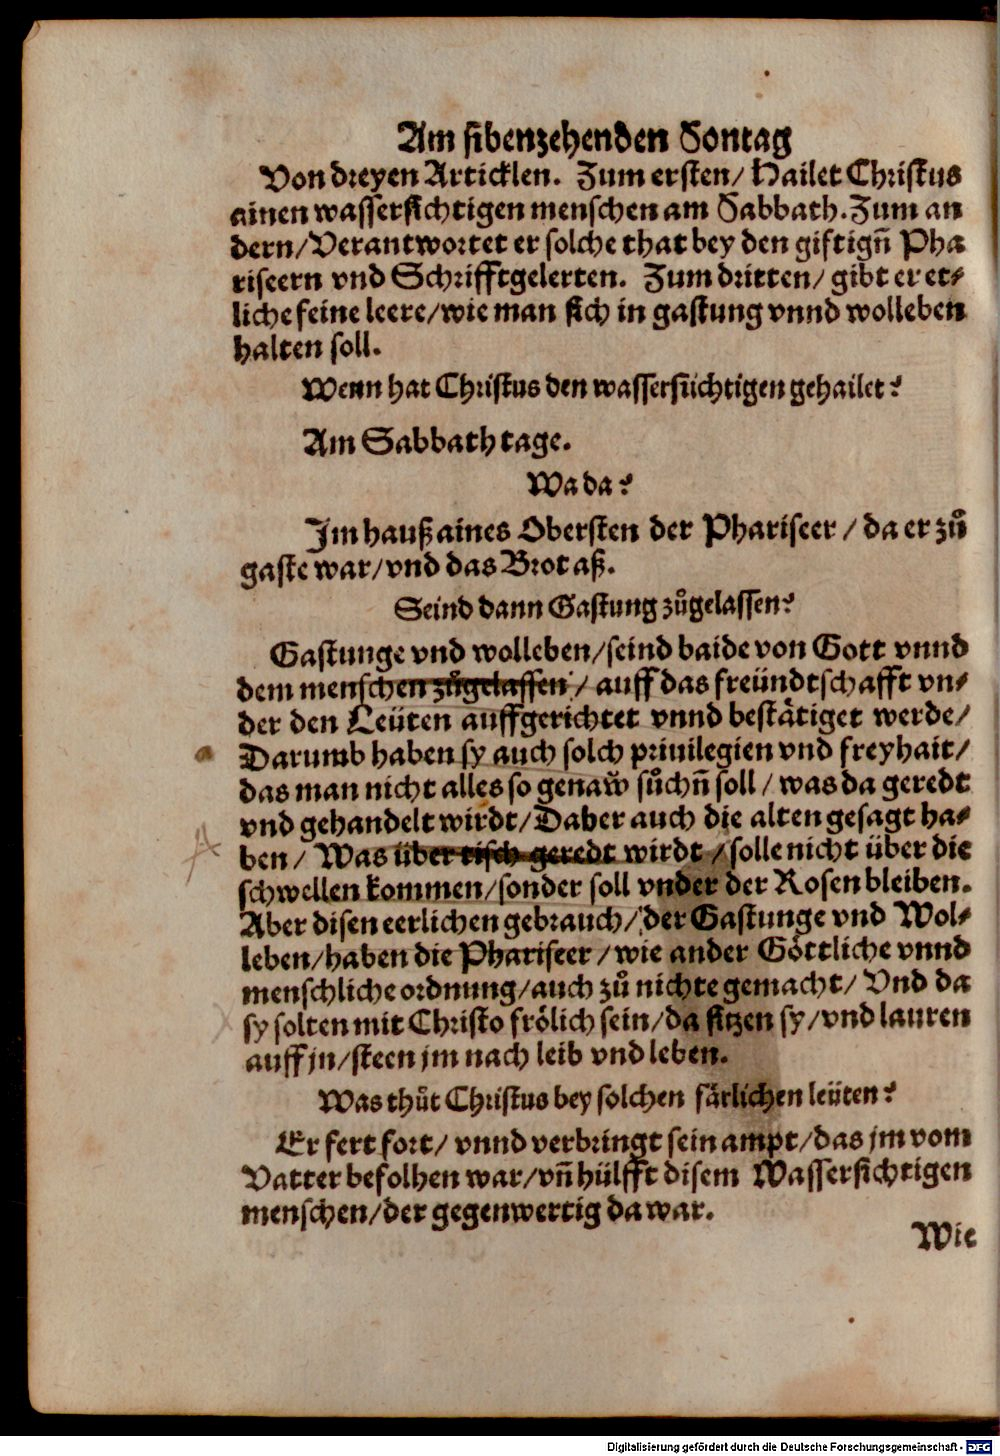 Am sibenzehenden Sontag
Von dreyen Articklen. Zum ersten/ Hailet Christus
ainen wassersichtigen menschen am Sabbath. Zum an
dern/Verantwortet er solche that bey den giftigñ Pha
riseern vnd Schrifftgelerten. Zum dritten/ gibt er et-
liche feine leere/wie man sich in gastung vnnd wolleben
halten soll.
Wenn hat Christus den wassersüchtigen gehailet?
Am Sabbath tage.
Wa da?
Im hauß aines Obersten der Phariseer / da er zuͦ
gaste war/vnd das Brot aß.
Seind dann Gastung zuͦgelassen?
Gastunge vnd wolleben/seind baide von Gott vnnd
dem menschen zuͦgelassen / auff das freündtschafft vn-
der den Leüten auffgerichtet vnnd bestaͤtiget werde/
Darumb haben sy auch solch priuilegien vnd freyhait/
das man nicht alles so genaw̆ suͦchñ soll / was da geredt
vnd gehandelt wirdt/Daher auch die alten gesagt ha-
ben/ Was über tisch geredt wirdt / solle nicht über die
schwellen kommen/sonder soll vnder der Rosen bleiben.
Aber disen eerlichen gebrauch/ der Gastunge vnd Wol-
leben/haben die Phariseer / wie ander Goͤttliche vnnd
menschliche ordnung/auch zuͦ nichte gemacht/ Vnd da
sy solten mit Christo froͤlich sein/da sitzen sy/vnd lauren
auff jn/steen jm nach leib vnd leben.
Was thuͦt Christus bey solchen faͤrlichen leüten?
Er fert fort/ vnnd verbringt sein ampt/das jm vom
Vatter befolhen war/vñ hülfft disem Wassersichtigen
menschen/der gegenwertig da war.
Wie
Digitalisierung gefördert durch die Deutsche Forschungsgemeinschaft - DFG